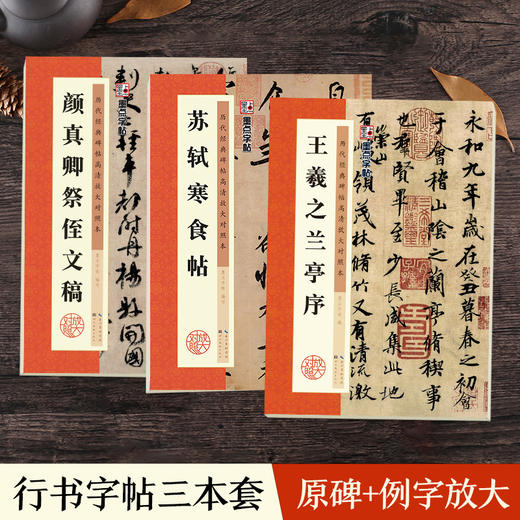 颜真卿祭侄文稿
历代经典碑帖高清放大对照本
墨点字帖
苏轼寒食帖
历代经典碑帖高清放大对照本
墨点字帖
王羲之兰亭序
历代经典碑帖高清放大对照本
墨点字帖
永和九年歲在癸丑暮春之初會
于會稽山陰之蘭亭脩稧事
也羣賢畢至少長咸集此地
有崇山
峻領茂林脩竹又有清流激
行书字帖三本套
原碑+例字放大